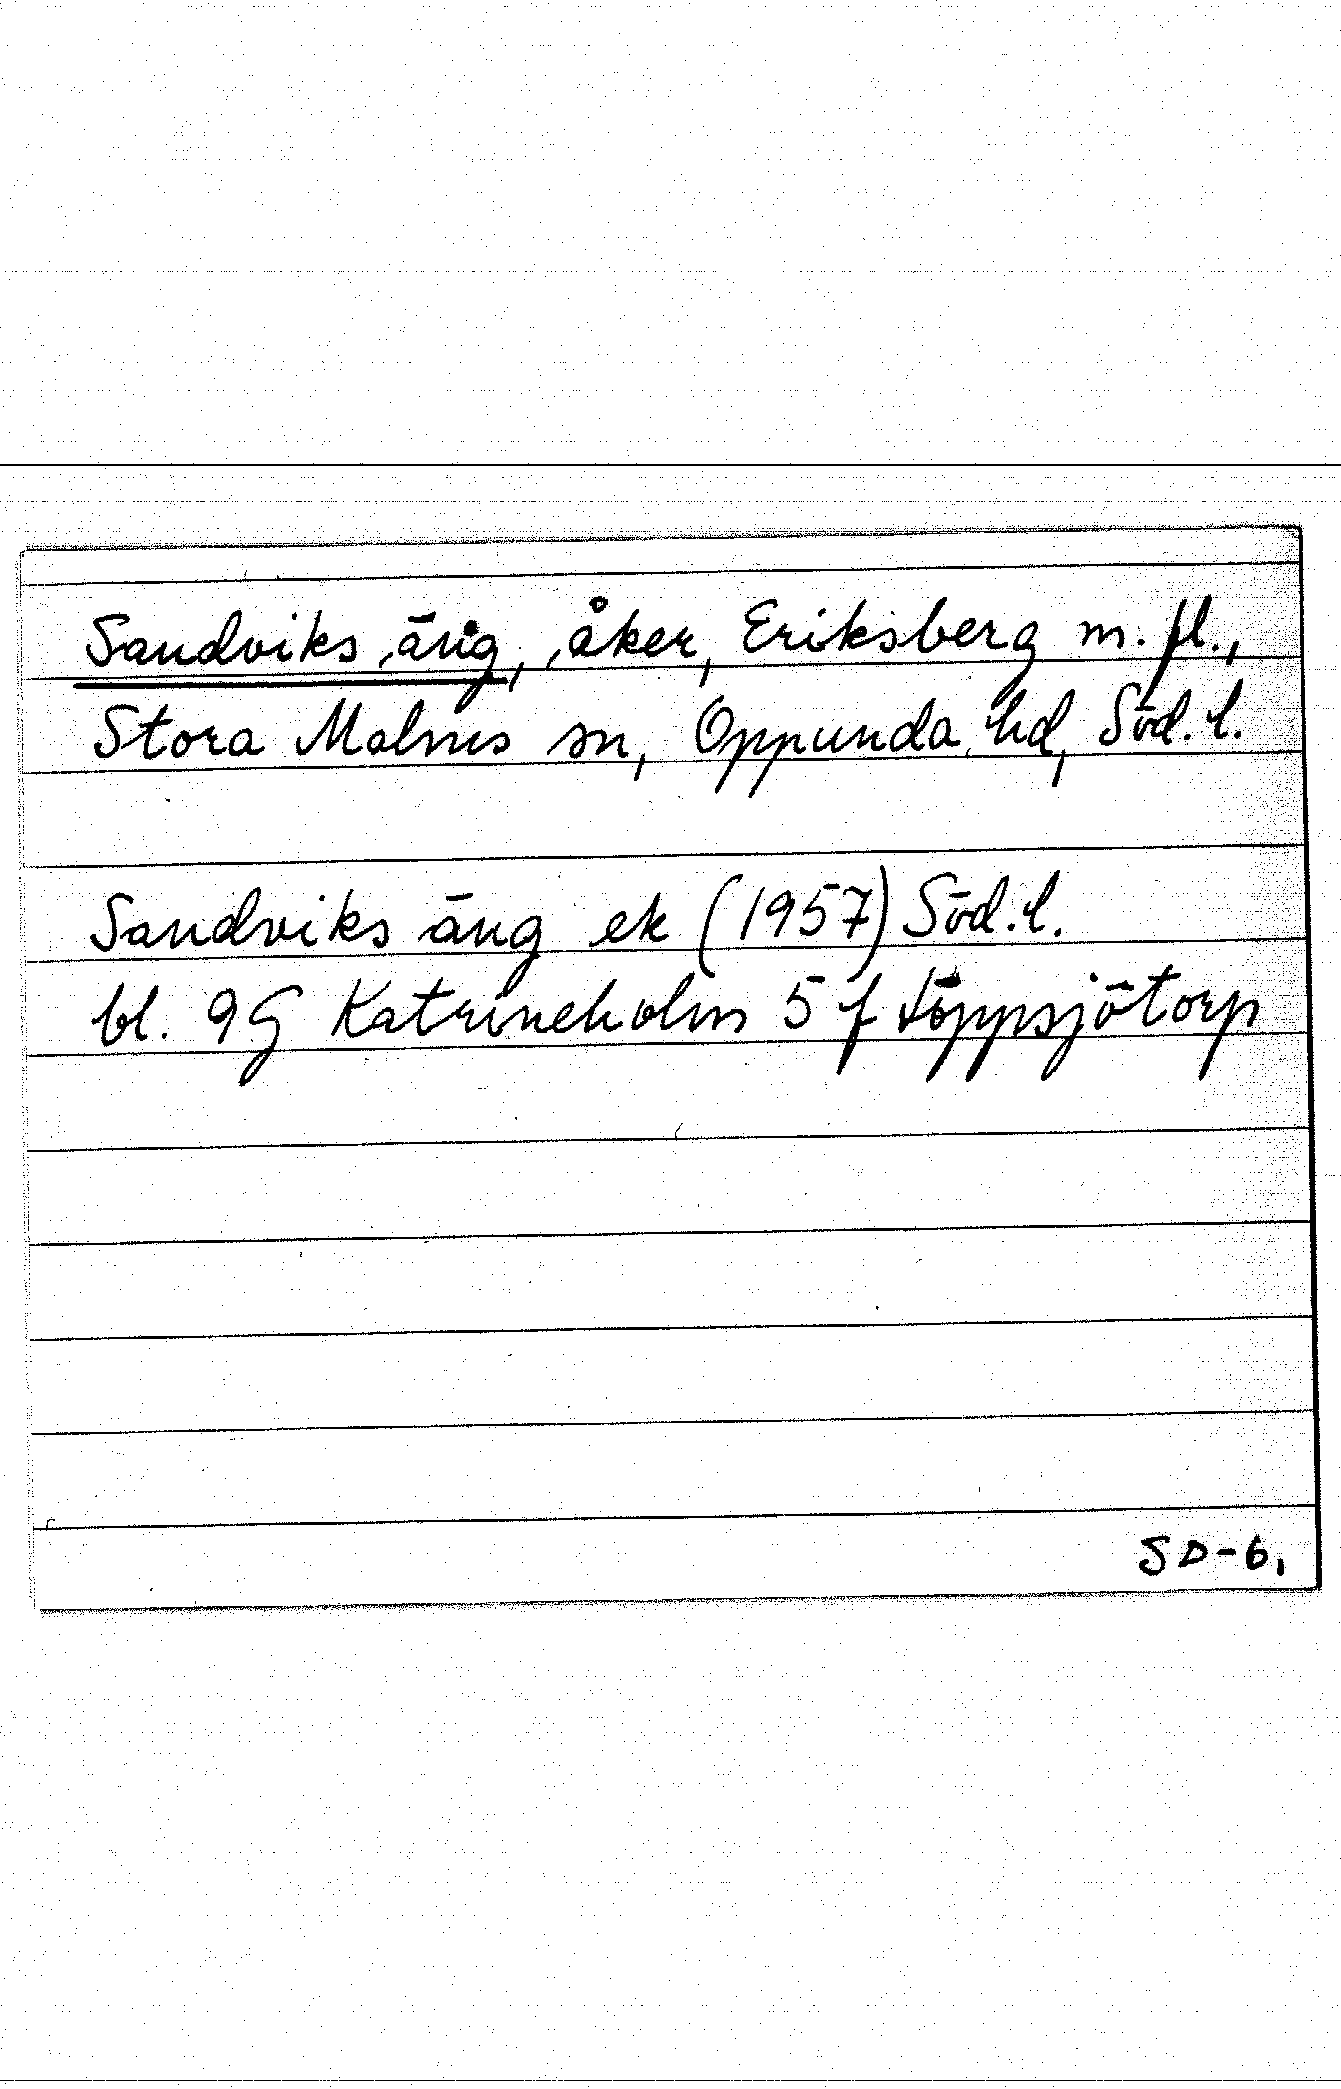 Sandviks äng, åker, Eriksberg m. fl.,
Stora Malms sn, Oppunda hd, Söd. l.
Sandviks äng ek (1957) Söd. l.
bl. 9G Katrineholm 5 f Löppsjötorp
SD-6,